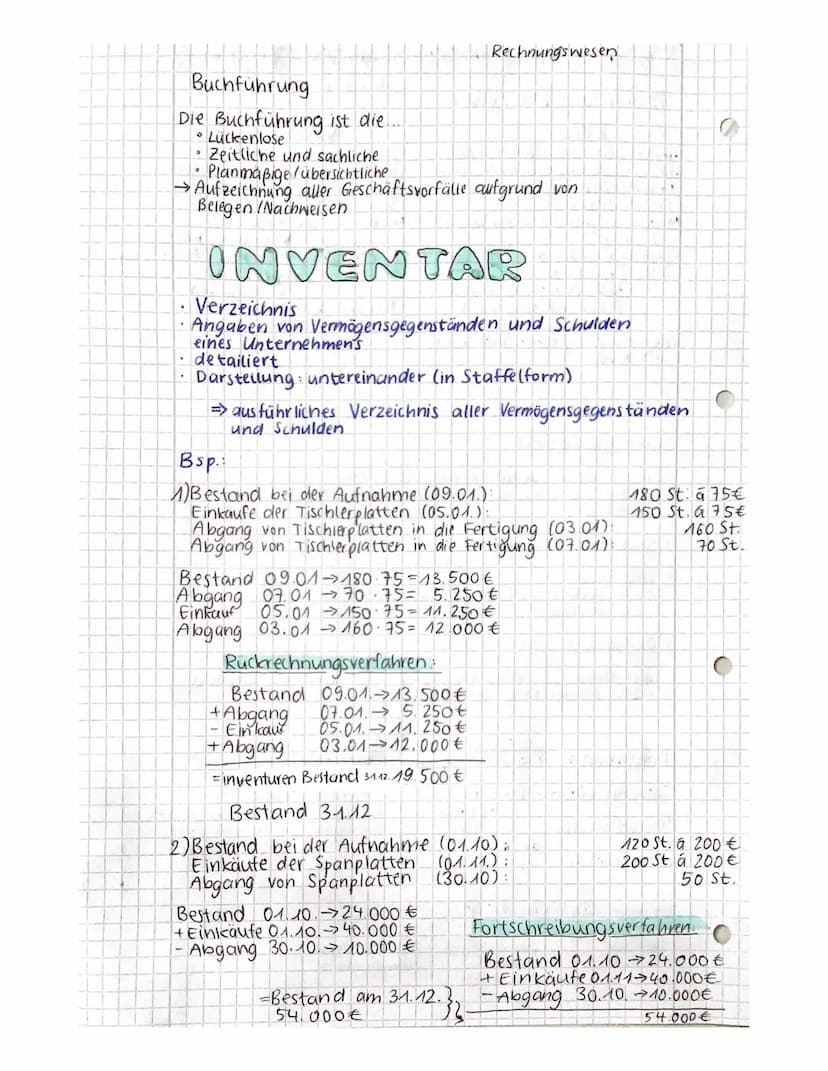 Rechnungswesen
Buchführung
Die Buchführung ist die...
• Lückenlose
• Zeitliche und sachliche
• Planmäßige/übersichtliche
→ Aufzeichnung aller Geschäftsvorfälle aufgrund von
Belegen/Nachweisen
INVENTAR
· Verzeichnis
· Angaben von Vermögensgegenständen und Schulden
eines Unternehmens
· detailiert
· Darstellung: untereinander (in Staffelform)
⇒ ausführliches Verzeichnis aller Vermögensgegenständen
und Schulden
Bsp.:
1) Bestand bei der Aufnahme (09.01.): 180 St. á 75€
Einkäufe der Tischlerplatten (05.01.): 150 St. á 75€
Abgang von Tischlerplatten in die Fertigung (03.01): 160 St.
Abgang von Tischlerplatten in die Fertigung (07.01): 70 St.
Bestand 09.01 → 180 · 75 = 13.500 €
Abgang 07.01 → 70 · 75 = 5.250 €
Einkauf 05.01 → 150 · 75 = 11.250 €
Abgang 03.01 → 160 · 75 = 12.000 €
Rückrechnungsverfahren:
Bestand 09.01. → 13.500 €
+ Abgang 07.01. → 5.250 €
- Einkauf 05.01. → 11.250 €
+ Abgang 03.01 → 12.000 €
= inventuren Bestand 31.12. 19.500 €
Bestand 31.12
2) Bestand bei der Aufnahme (01.10): 120 St. á 200 €
Einkäufe der Spanplatten (01.11.): 200 St á 200 €
Abgang von Spanplatten (30.10): 50 St.
Bestand 01.10. → 24.000 €
+ Einkäufe 01.10. → 40.000 €
- Abgang 30.10. → 10.000 €
= Bestand am 31.12.
54.000 €
Fortschreibungsverfahren:
Bestand 01.10 → 24.000 €
+ Einkäufe 01.11 → 40.000€
- Abgang 30.10. → 10.000€
54.000 €